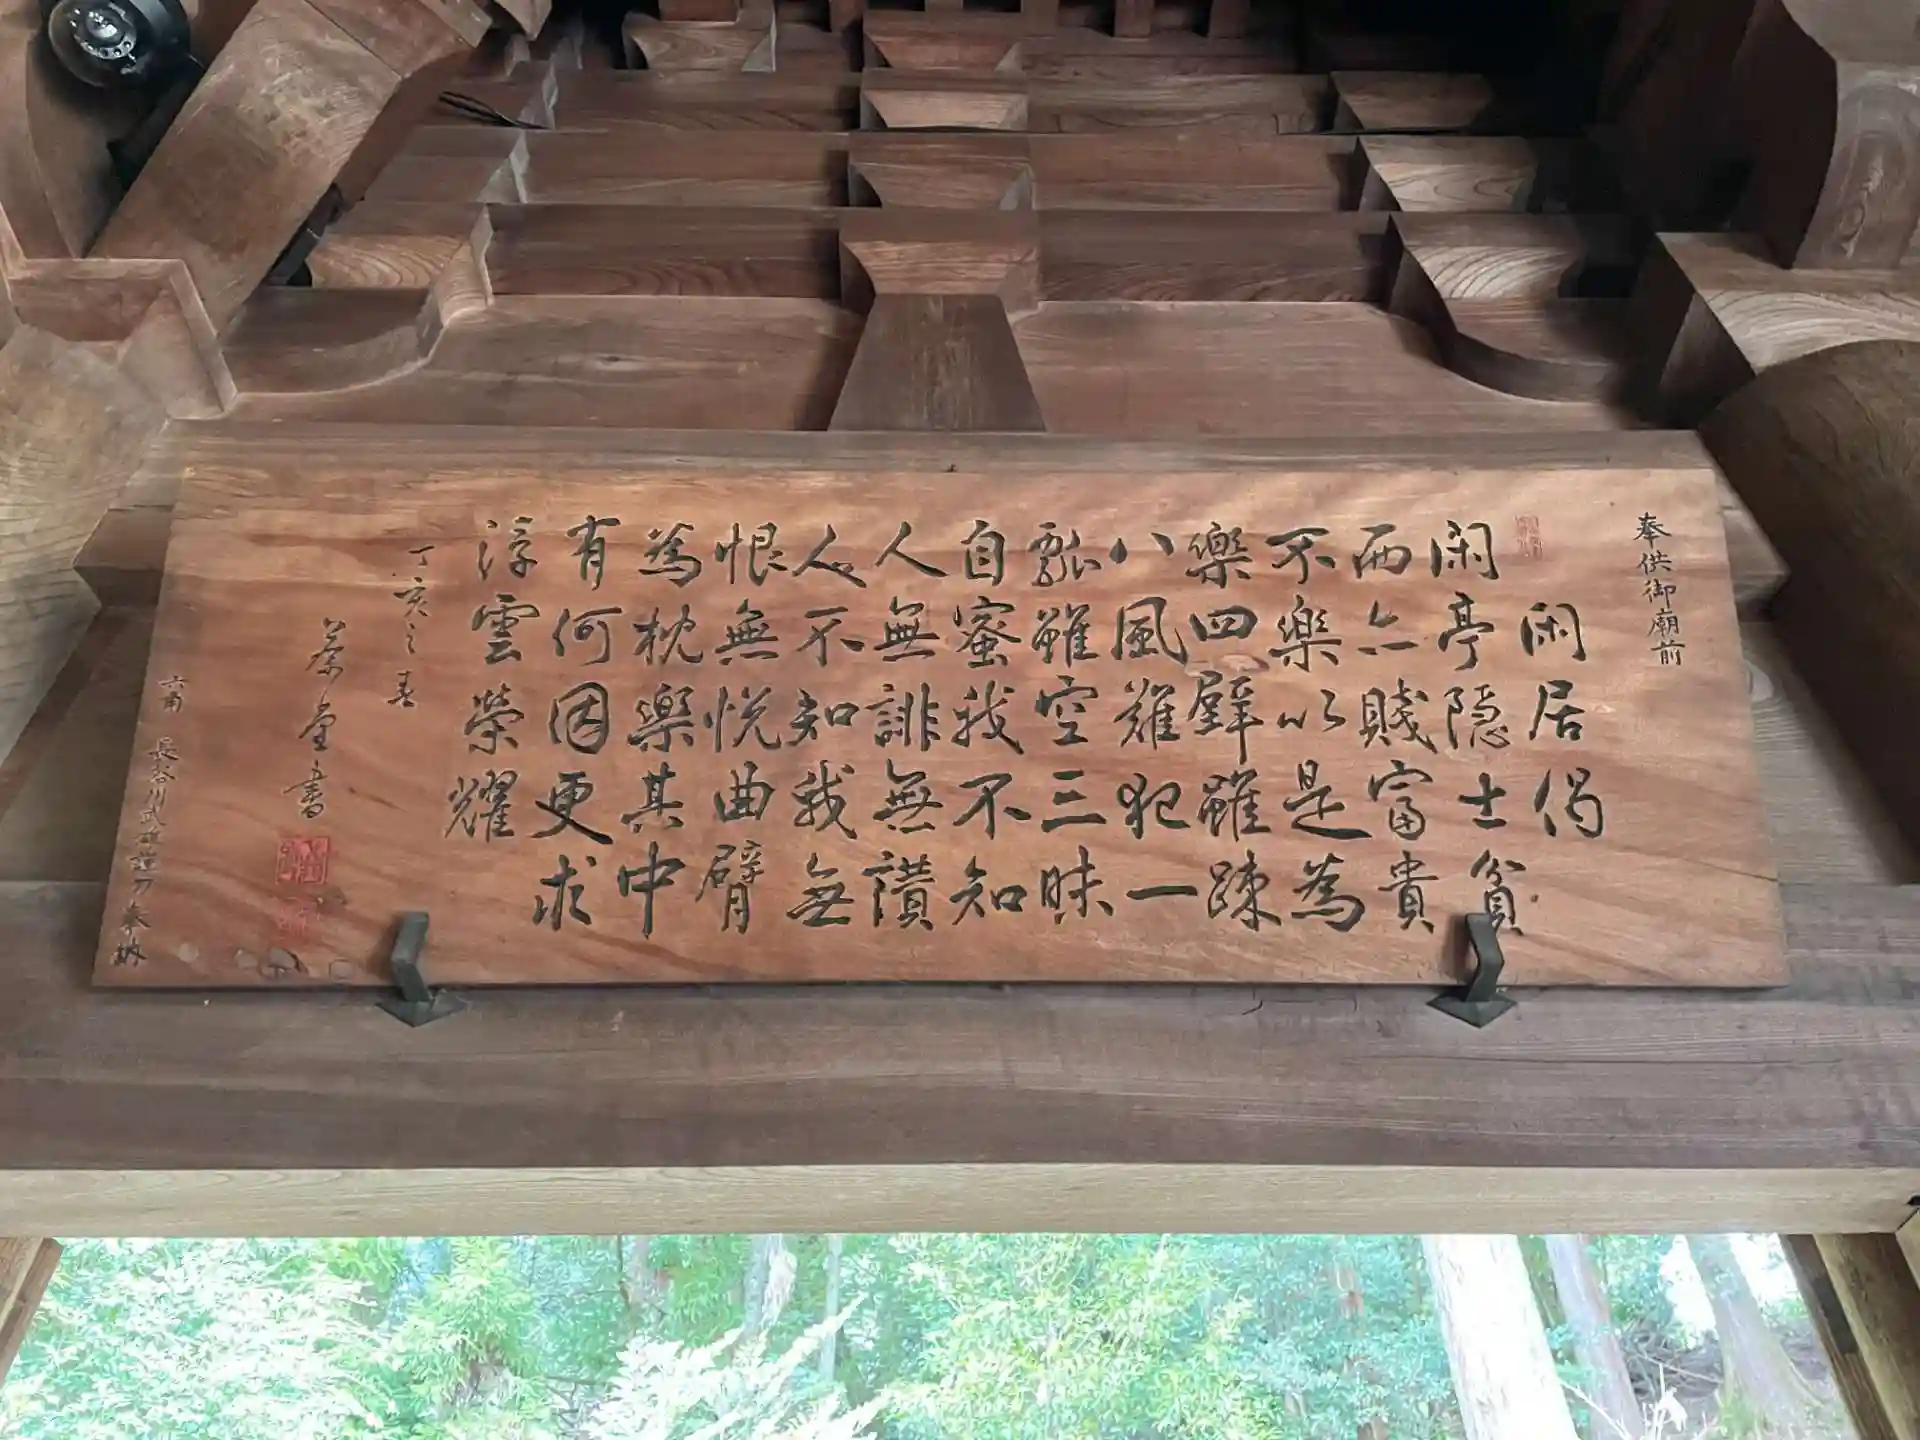 奉供御廟前
閑居偈
閑亭隠士貧
而亦賤富貴
不樂以是為
樂四壁雖踈
八風難犯一
瓢雖空三昧
自蜜我不知
人無誹無讃
人不知我無
恨無悦曲臂
為枕樂其中
有何因更求
浮雲榮耀
丁亥之春
堂書
六角 長谷川武雄謹刀奉納